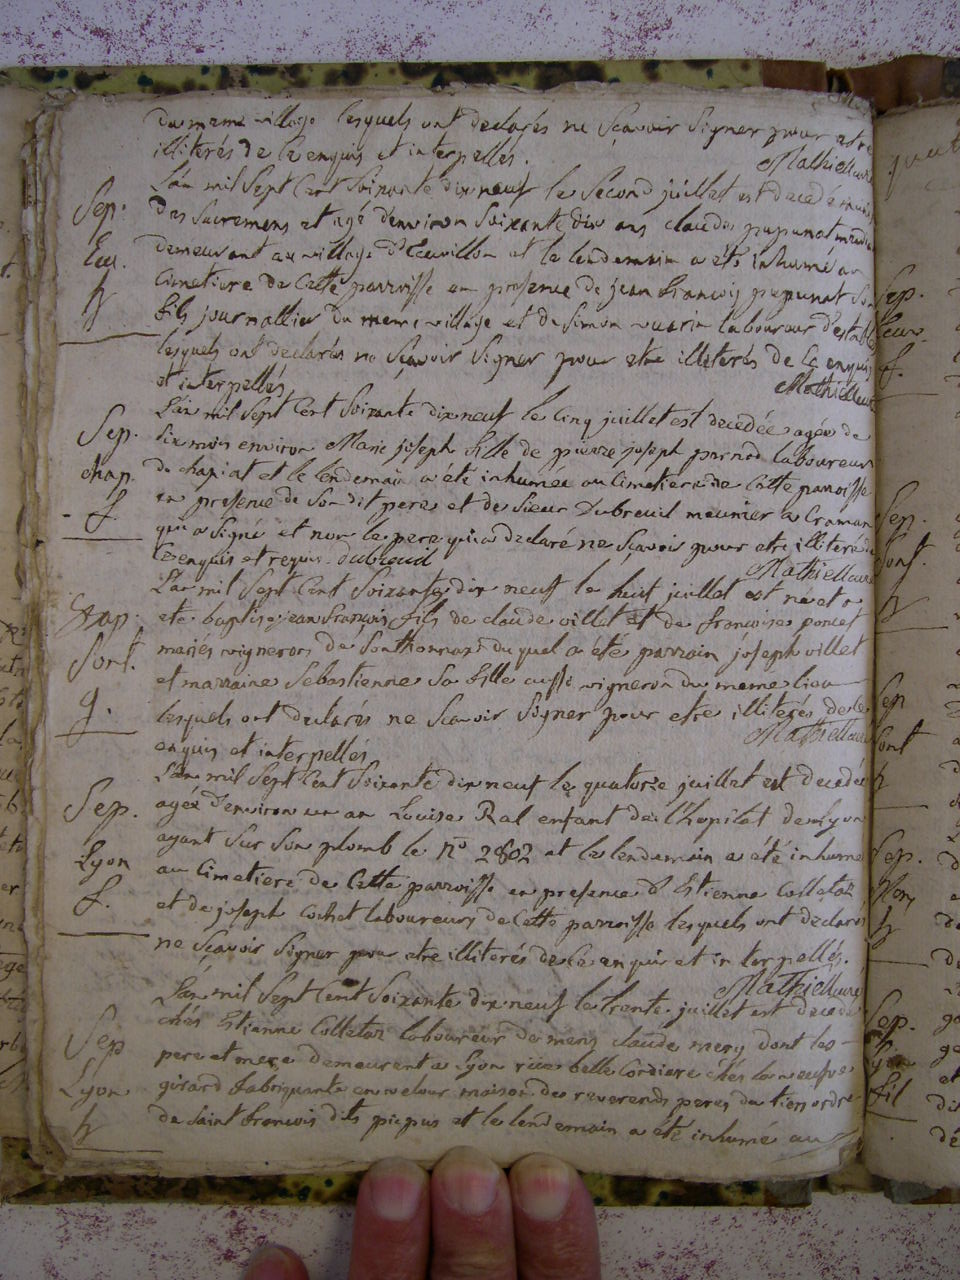 du meme village lesquels ont declarés ne sçavoir signer pour etre
illiterés de ce enquis et interpellés. Mathieu curé
L'an mil sept cent soixante dix neuf le second juillet est decedé munis
Sep. des sacremens et agé d'environ soixante dix ans claude pupunat
Ecu. demeurant au village d'Ecuvillon et le lendemain a été inhumé au
h cimetiere de cette parroisse en presence de jean francois pupunat son
fils journallier du meme village et de Simon vuarin laboureur
lesquels ont declarés ne sçavoir signer pour etre illiterés de ce enquis
et interpellés. Mathieu curé
L'an mil sept cent soixante dix neuf le cinq juillet est decedée agée de
Sep. six mois environ Marie joseph fille de pierre joseph pernod laboureur
chap. de chapiat et le lendemain a été inhumée au cimetiere de cette parroisse
f. en presence de son dit pere et de sieur Dubreuil meunier a Craman
qui a signé et non le pere qui a declaré ne sçavoir pour etre illiteré de
ce enquis et requis. dubreuil Mathieu curé
L'an mil sept cent soixante dix neuf le huit juillet est né et a
Bap. eté baptisé jean françois fils de claude villet et de françoise poncet
Sont. mariés vignerons de Sonthonnax duquel a été parrain joseph villet
et marraine Sebastienne sa fille aussi vigneron du meme lieu
g. lesquels ont declarés ne sçavoir signer pour etre illiterés de ce
enquis et interpellés Mathieu curé
L'an mil sept cent soixante dix neuf le quatorze juillet est decedée
Sep. agée d'environ un an Louise Ral enfant de l'hopital de Lyon
ayant sur son plomb le n° 2802 et le lendemain a été inhumé
Lyon au cimetiere de cette parroisse en presence d'Etienne Colletaz
f. et de joseph cochet laboureurs de cette parroisse lesquels ont declarés
ne sçavoir signer pour etre illiterés de ce enquis et interpellés.
Mathieu curé
L'an mil sept cent soixante dix neuf le trente juillet est decedé
chés Etienne Colletaz laboureur de claude mery dont les
Sep pere et mere demeurant a Lyon rüe belle Cordiere chés la veufve
Lyon girard fabriquante en velour maison des reverends peres du tiers ordre
h de saint francois dits picpus et le lendemain a été inhumé au